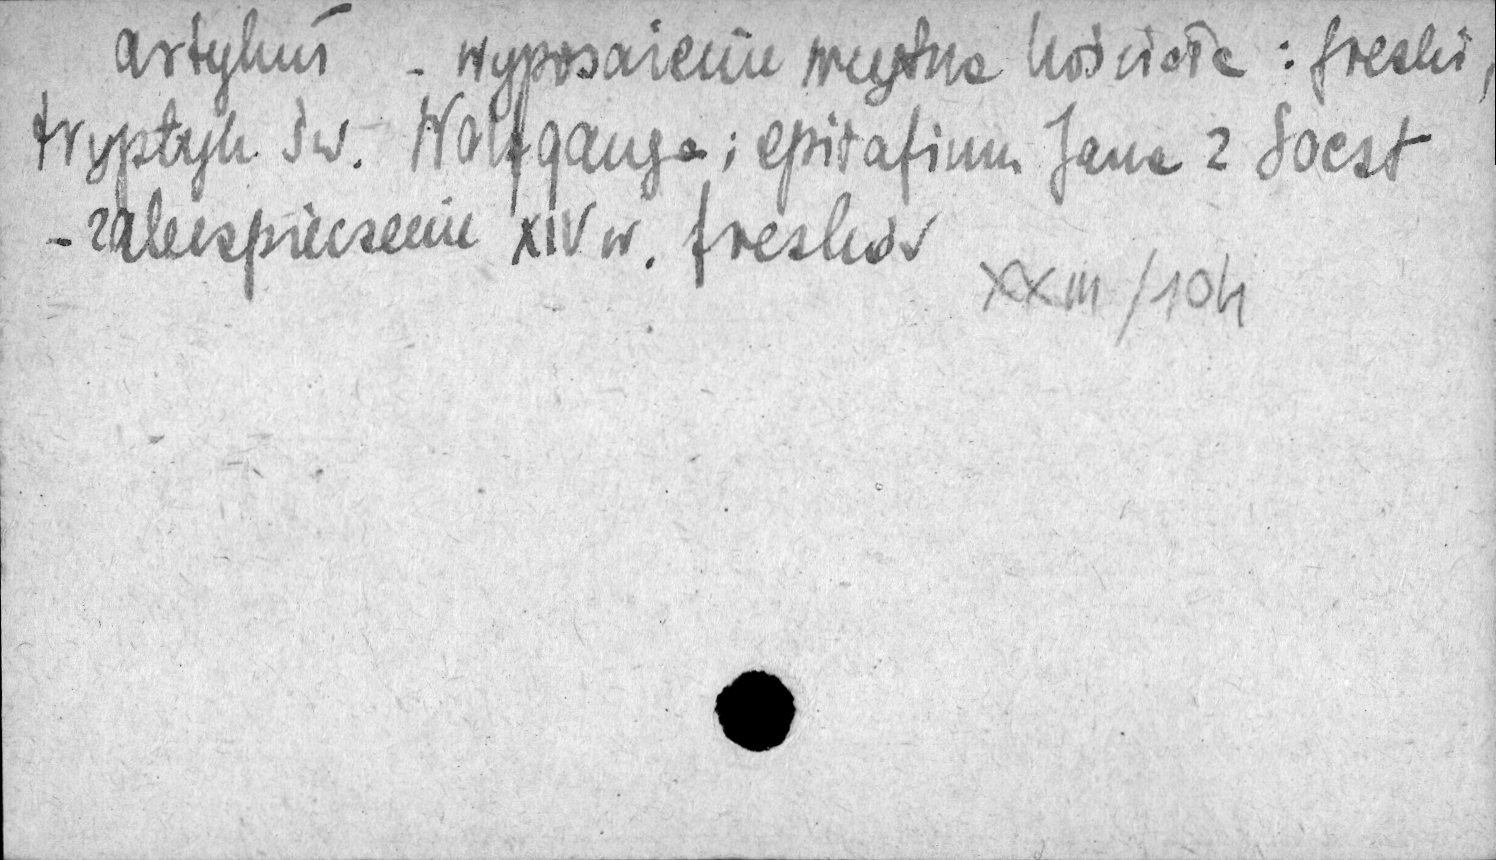 artykuł - wyposażenie wnętrza kościoła : freski,
tryptyk św. Wolfganga i epitafium Jana z Soest
- zabezpieczenie XIV w. fresków
XXIII/104